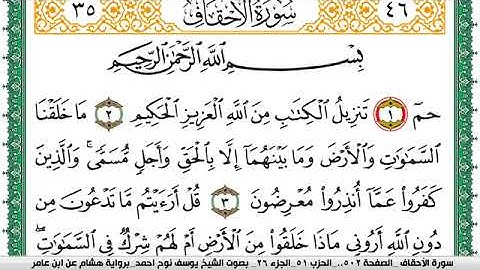 ٤٦ سُورَةُ الأَحْقَافِ ٣٥
بِسْمِ اللَّهِ الرَّحْمَٰنِ الرَّحِيمِ
حمٓ ١ تَنزِيلُ الْكِتَابِ مِنَ اللَّهِ الْعَزِيزِ الْحَكِيمِ ٢ مَا خَلَقْنَا
السَّمَاوَاتِ وَالْأَرْضَ وَمَا بَيْنَهُمَا إِلَّا بِالْحَقِّ وَأَجَلٍ مُّسَمًّى ۚ وَالَّذِينَ
كَفَرُوا عَمَّا أُنذِرُوا مُعْرِضُونَ ٣ قُلْ أَرَأَيْتُم مَّا تَدْعُونَ مِن
دُونِ اللَّهِ أَرُونِي مَاذَا خَلَقُوا مِنَ الْأَرْضِ أَمْ لَهُمْ شِرْكٌ فِي السَّمَاوَاتِ ۖ
سورة الأحقاف_الصفحة ٥٠٢_الحزب ٥١_الجزء ٢٦_ بصوت الشيخ يوسف نوح احمد_برواية هشام عن ابن عامر